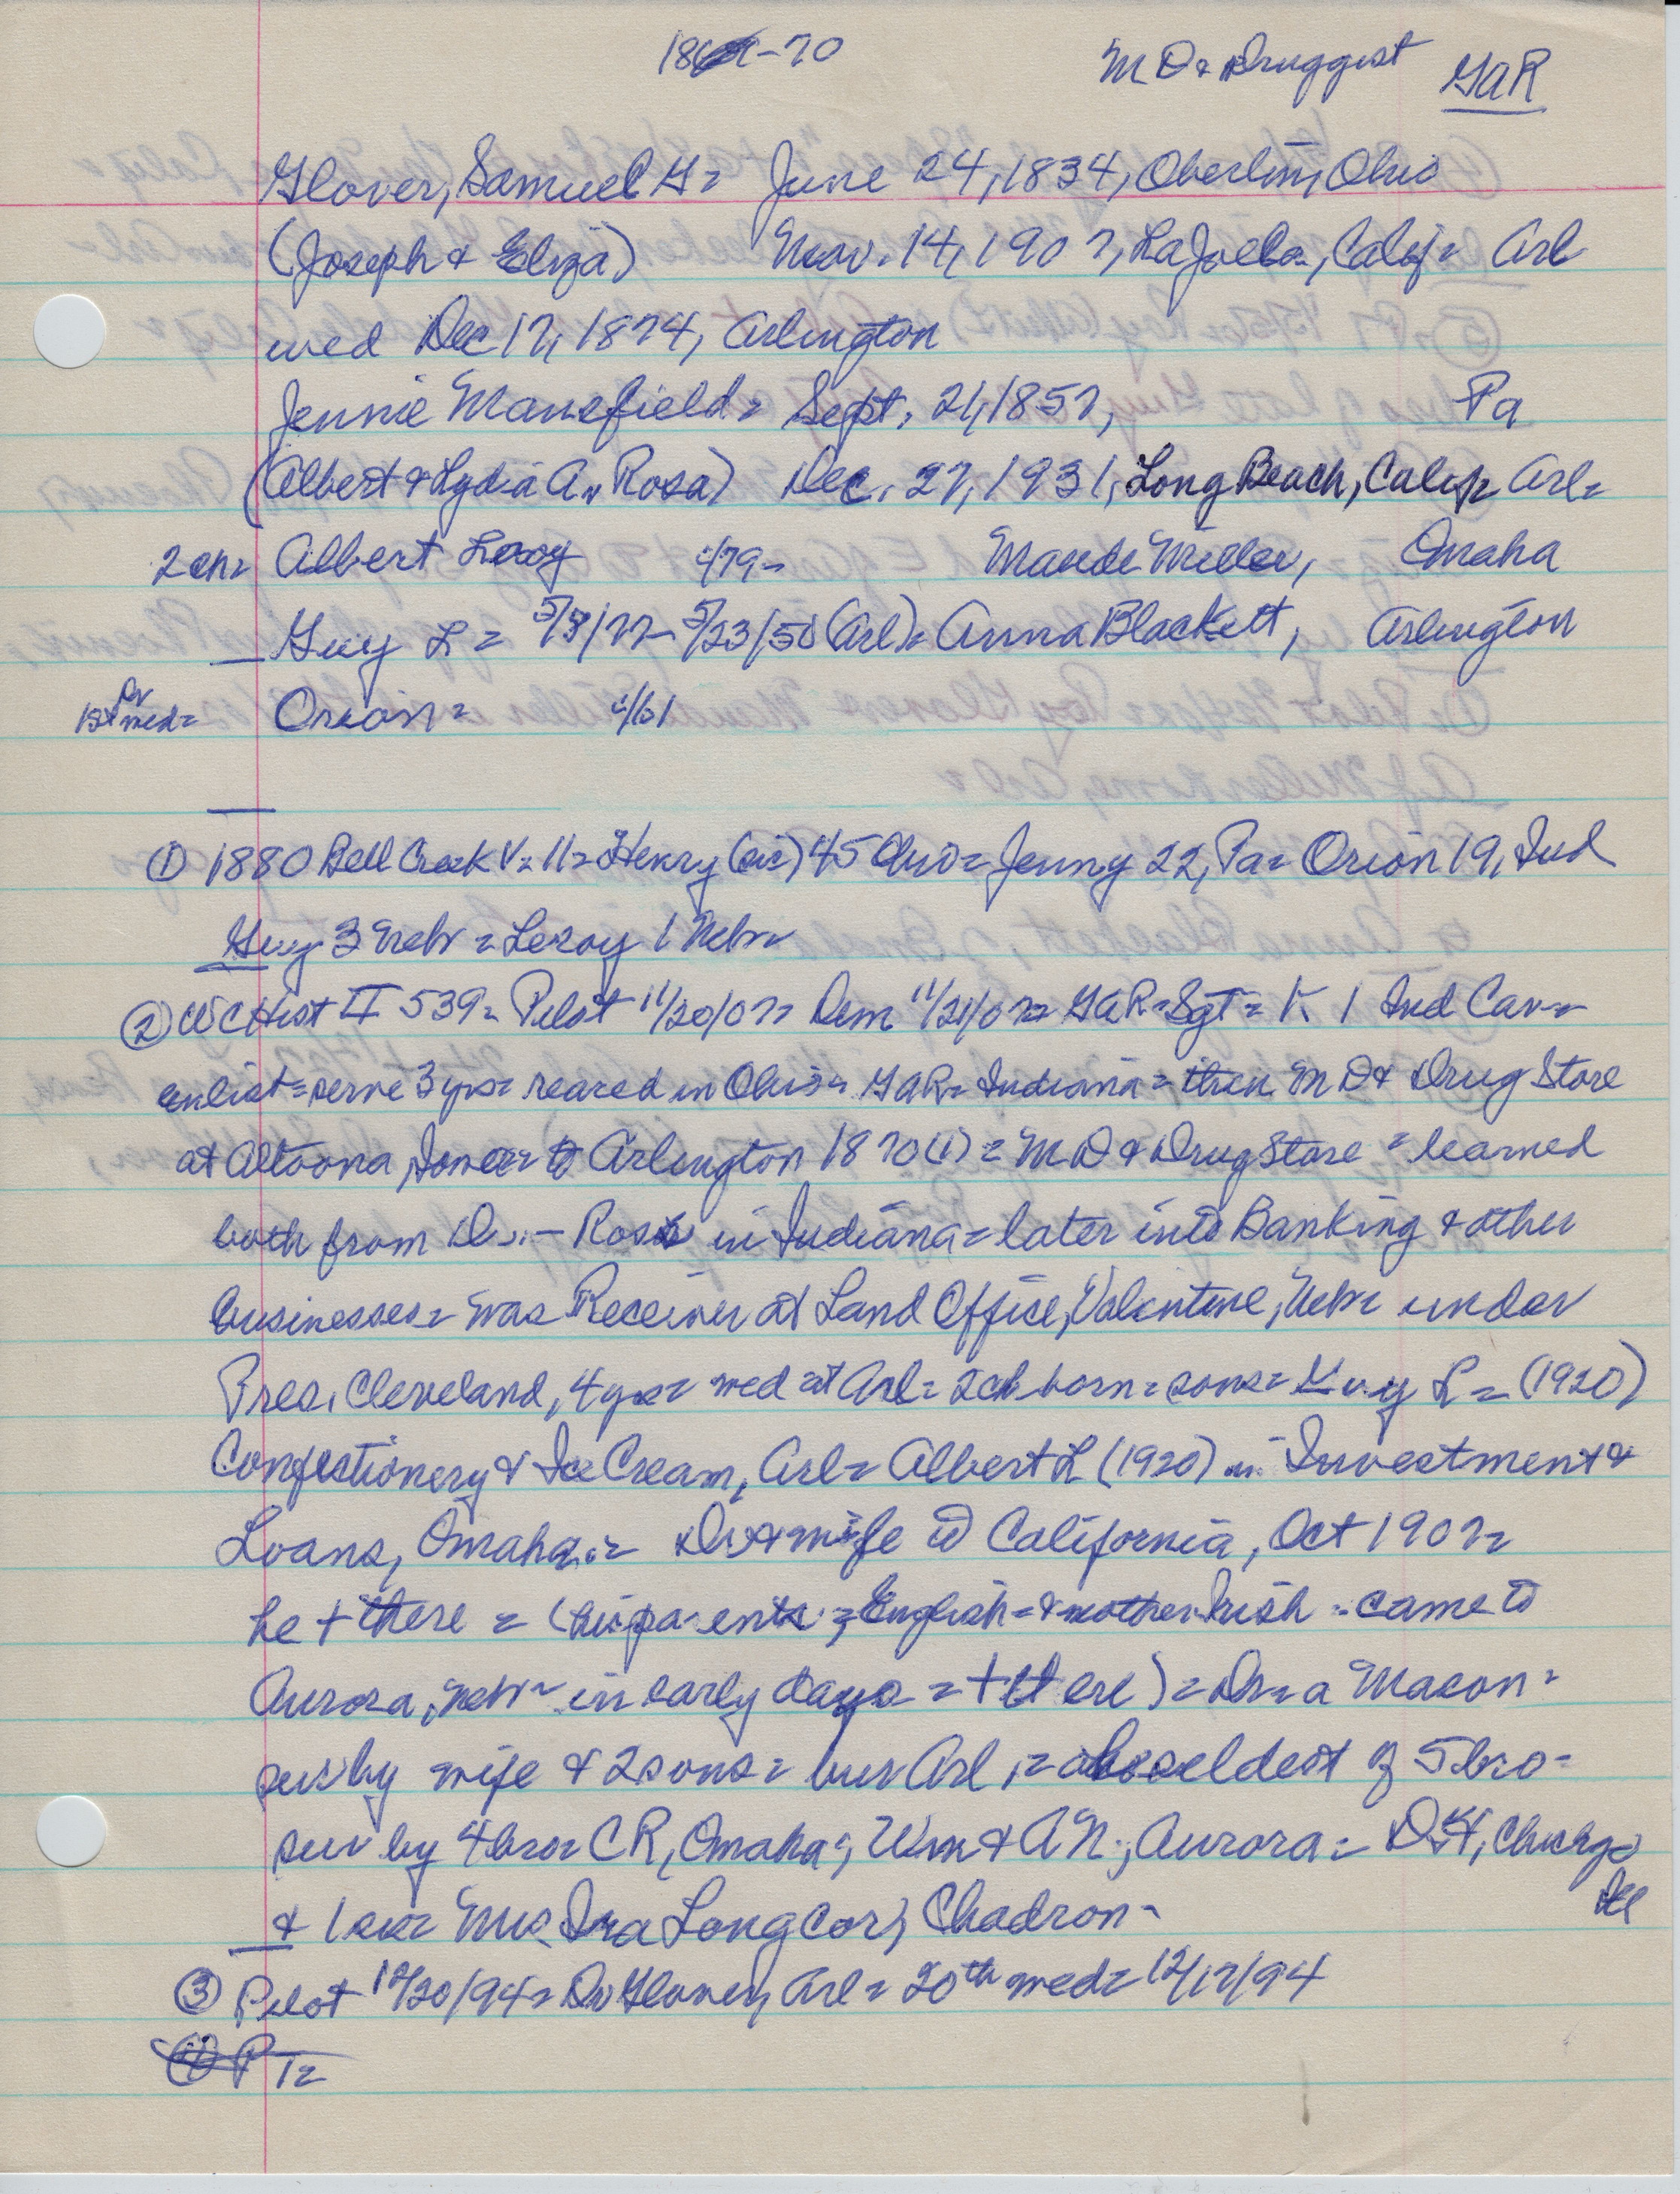 -70 MD & Druggist GAR
Glover, Samuel G = June 24, 1834, Oberlin, Ohio
(Joseph & Eliza) Nov. 14, 1907, LaJolla, Calif = Arl
wed Dec 17, 1874, Arlington
Jennie Mansfield = Sept. 21, 1857, Pa
(Albert & Lydia A. Rosa) Dec. 27, 1931, Long Beach, Calif = Arl =
2 ch = Albert Leroy c/79 - Maude Miller, Omaha
Guy L = 5/3/77 - 5/23/50 (Arl) = Anna Blackett, Arlington
by 1st wed = Orion = c/61
① 1880 Bell Creek V = 11 = Henry (sic) 45 Ohio = Jenny 22, Pa = Orion 19, Ind
Guy 3 Nebr = Leroy 1 Nebr =
② WC Hist II 539 = Pilot 11/20/07 = Dem 11/21/07 = GAR = Sgt = K 1 Ind Cav =
enlist = serve 3 yrs = reared in Ohio = GAR = Indiana = then MD & Drug Store
at Altoona, Iowa = to Arlington 1870 (1) = MD & Drug Store = learned
both from Dr. - Rosa in Indiana = later into Banking & other
businesses = was Receiver at Land Office, Valentine, Nebr under
Pres. Cleveland, 4 yrs = wed at Arl = 2 ch born = sons = Guy L = (1920)
Confectionery & Ice Cream, Arl = Albert L (1920) in Investment &
Loans, Omaha = Dr & wife to California, Oct 1907 =
he + there = (his parents = English = & mother Irish - came to
Aurora, Nebr - in early days = + there) = Dr = a Mason -
sur by wife & 2 sons = bur Arl = eldest of 5 bro -
sur by 4 bro = CR, Omaha; Wm & AN; Aurora = Chicago
Ill
& 1 sis = Mrs. Ira Longcor, Chadron -
③ Pilot 12/20/94 = Dr Glover, Arl = 20th wed = 12/17/94
PT =